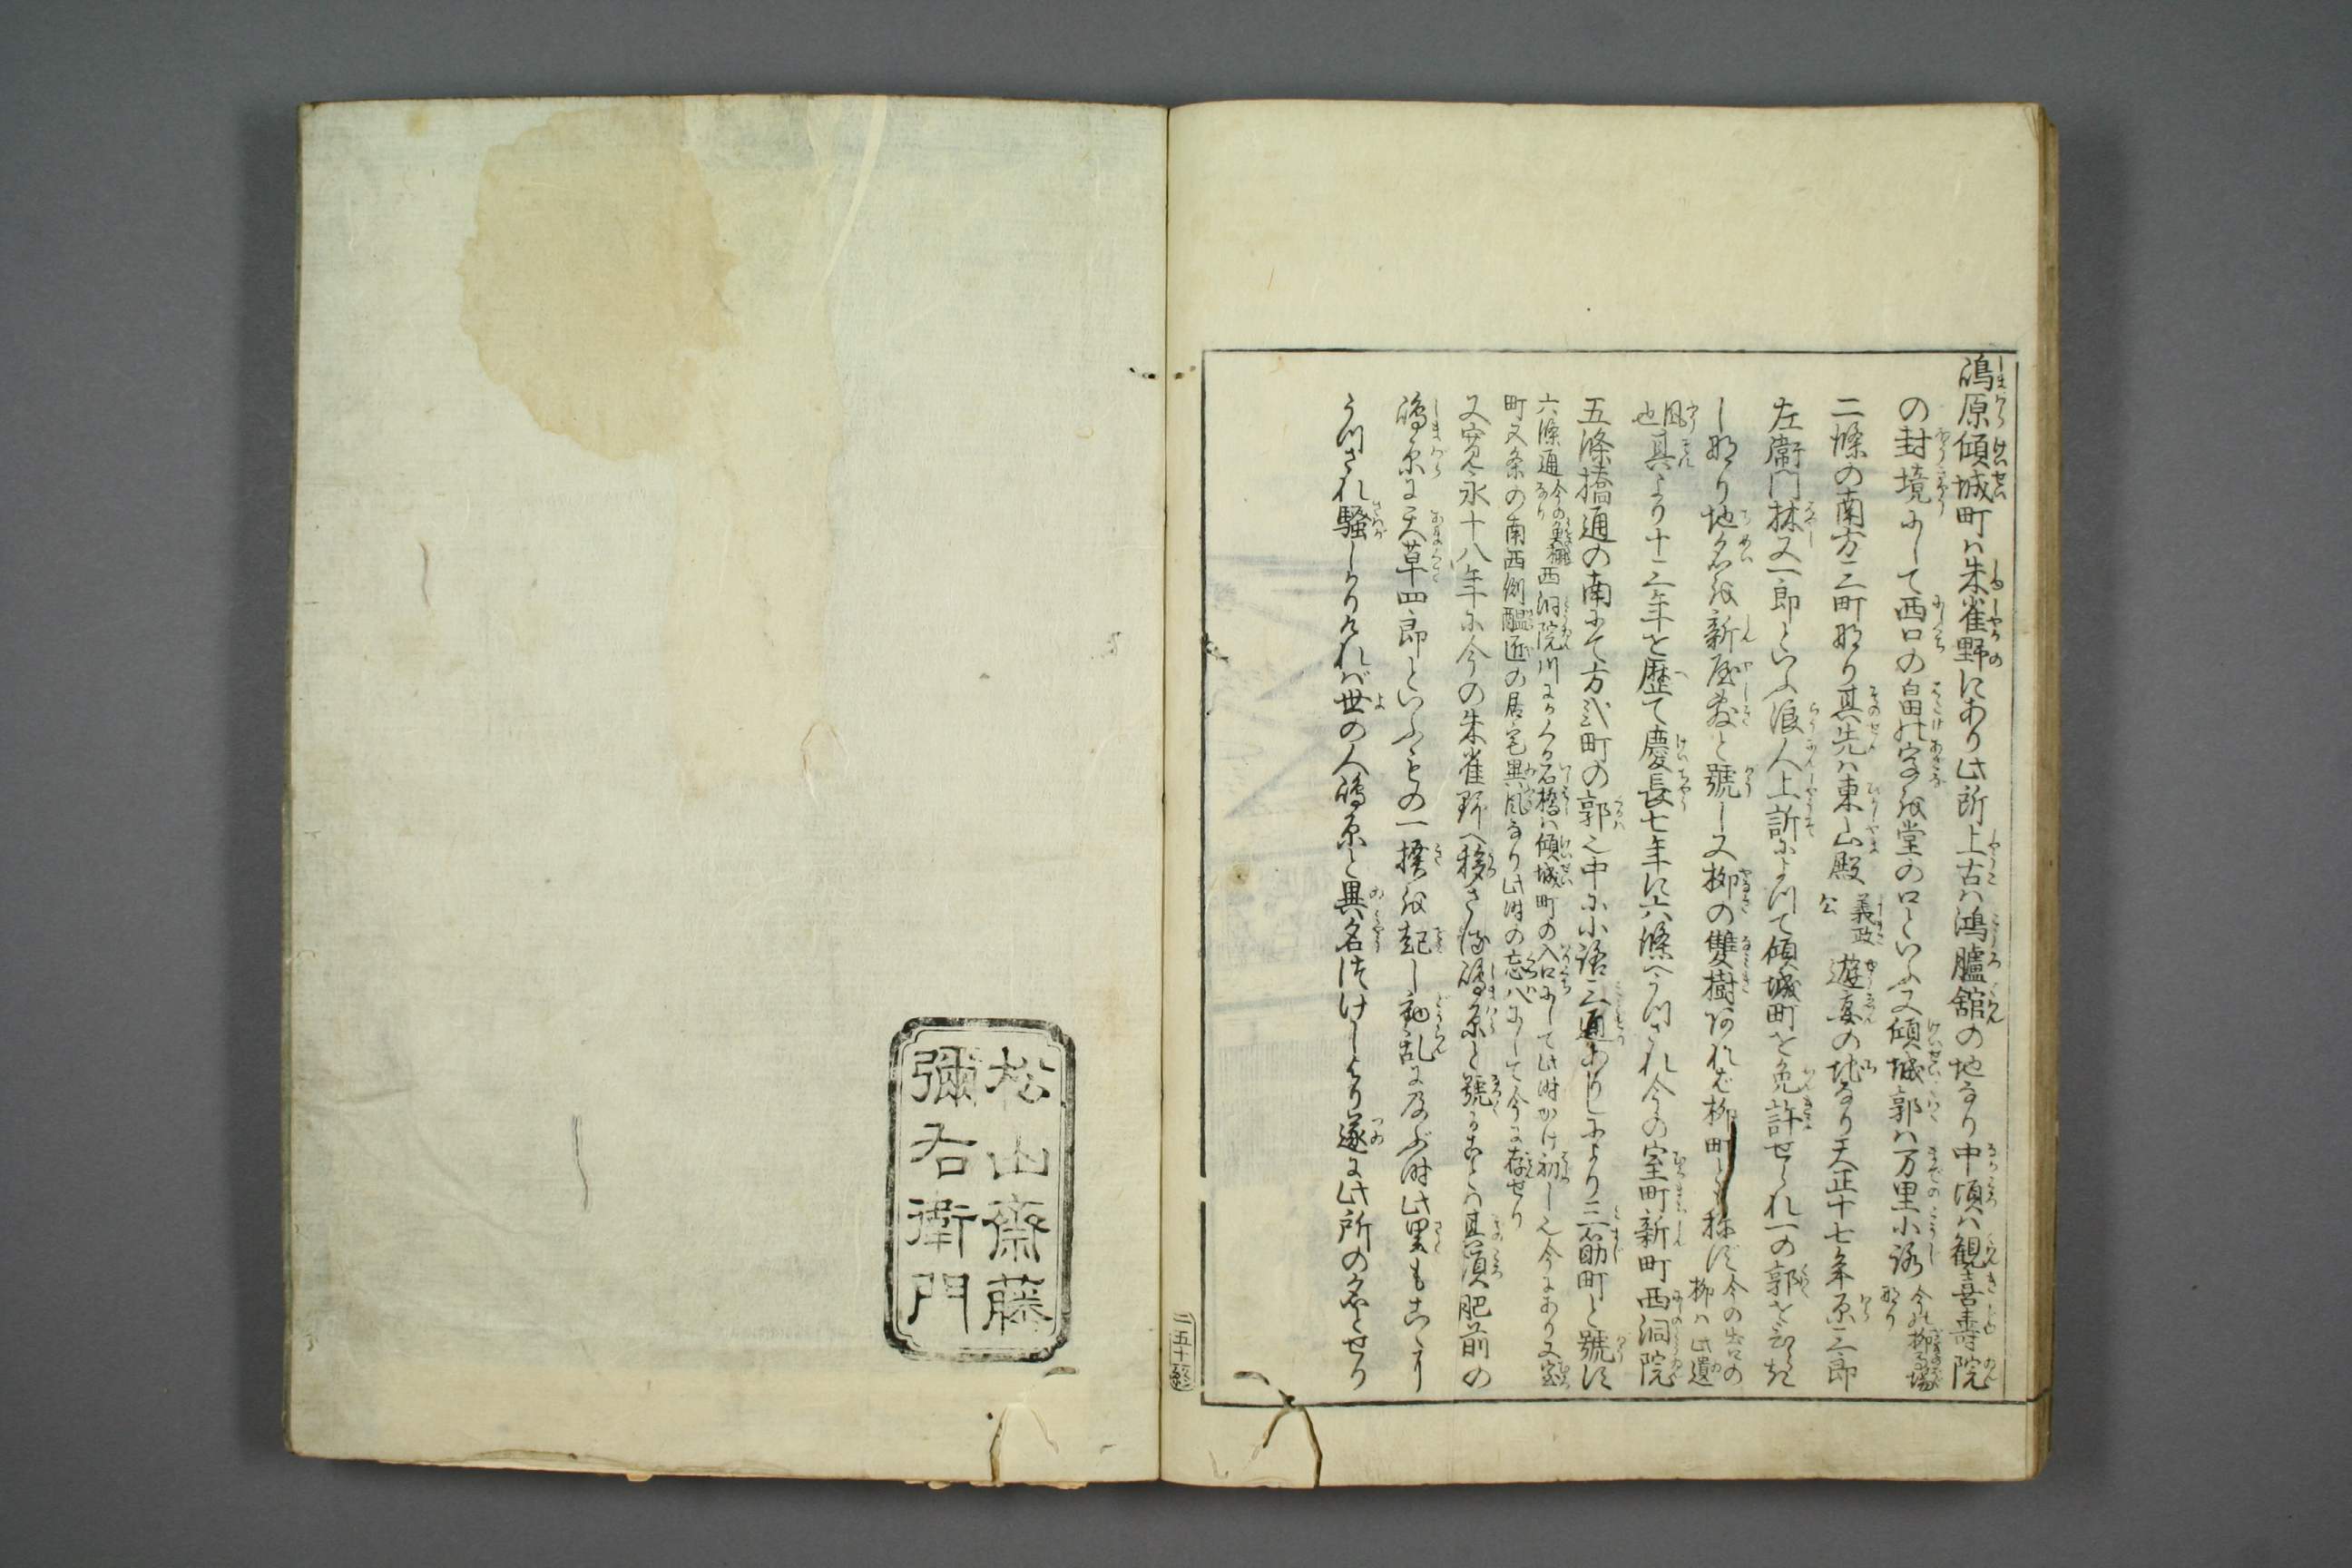 嶋原傾城町ハ朱雀野にあり此所上古ハ鴻臚舘の地なり中頃ハ観喜寿院
の封境にして西口の畠の字を堂の口といふ又傾城郭ハ万里小路今の柳馬場なり
二條の南方三町なり其先ハ東山殿義政公遊宴の地なり天正十七年原三郎
左衛門林又一郎といふ浪人上訴によつて傾城町を免許せられ一の郭をひらき
し也り地名を新屋敷と號し又柳の雙樹あれば柳町とも称ず今の出口の柳ハ此遺
風也其より十三年を歴て慶長七年に六條へうつされ今の室町新町西洞院
五條橋通の南にて方弐町の郭也中に小路三通ありしにより三筋町と號す
六條通今の魚棚なり西洞院川にかくる石橋ハ傾城町の入口にして此時かけ初しも今にあり又室
町五条の南西側の居宅異風なり此時の忘八にして今に存せり
又寛永十八年に今の朱雀野へ移さる嶋原と號ることハ其頃肥前の
嶋原に天草四郎といふもの一揆を起し動乱に及ぶ時此里もこゝに
うつされ騒しかりけれバ世の人嶋原と異名つけしより遂に此所の名とせり
二五十終
松山齋藤
彌右衛門